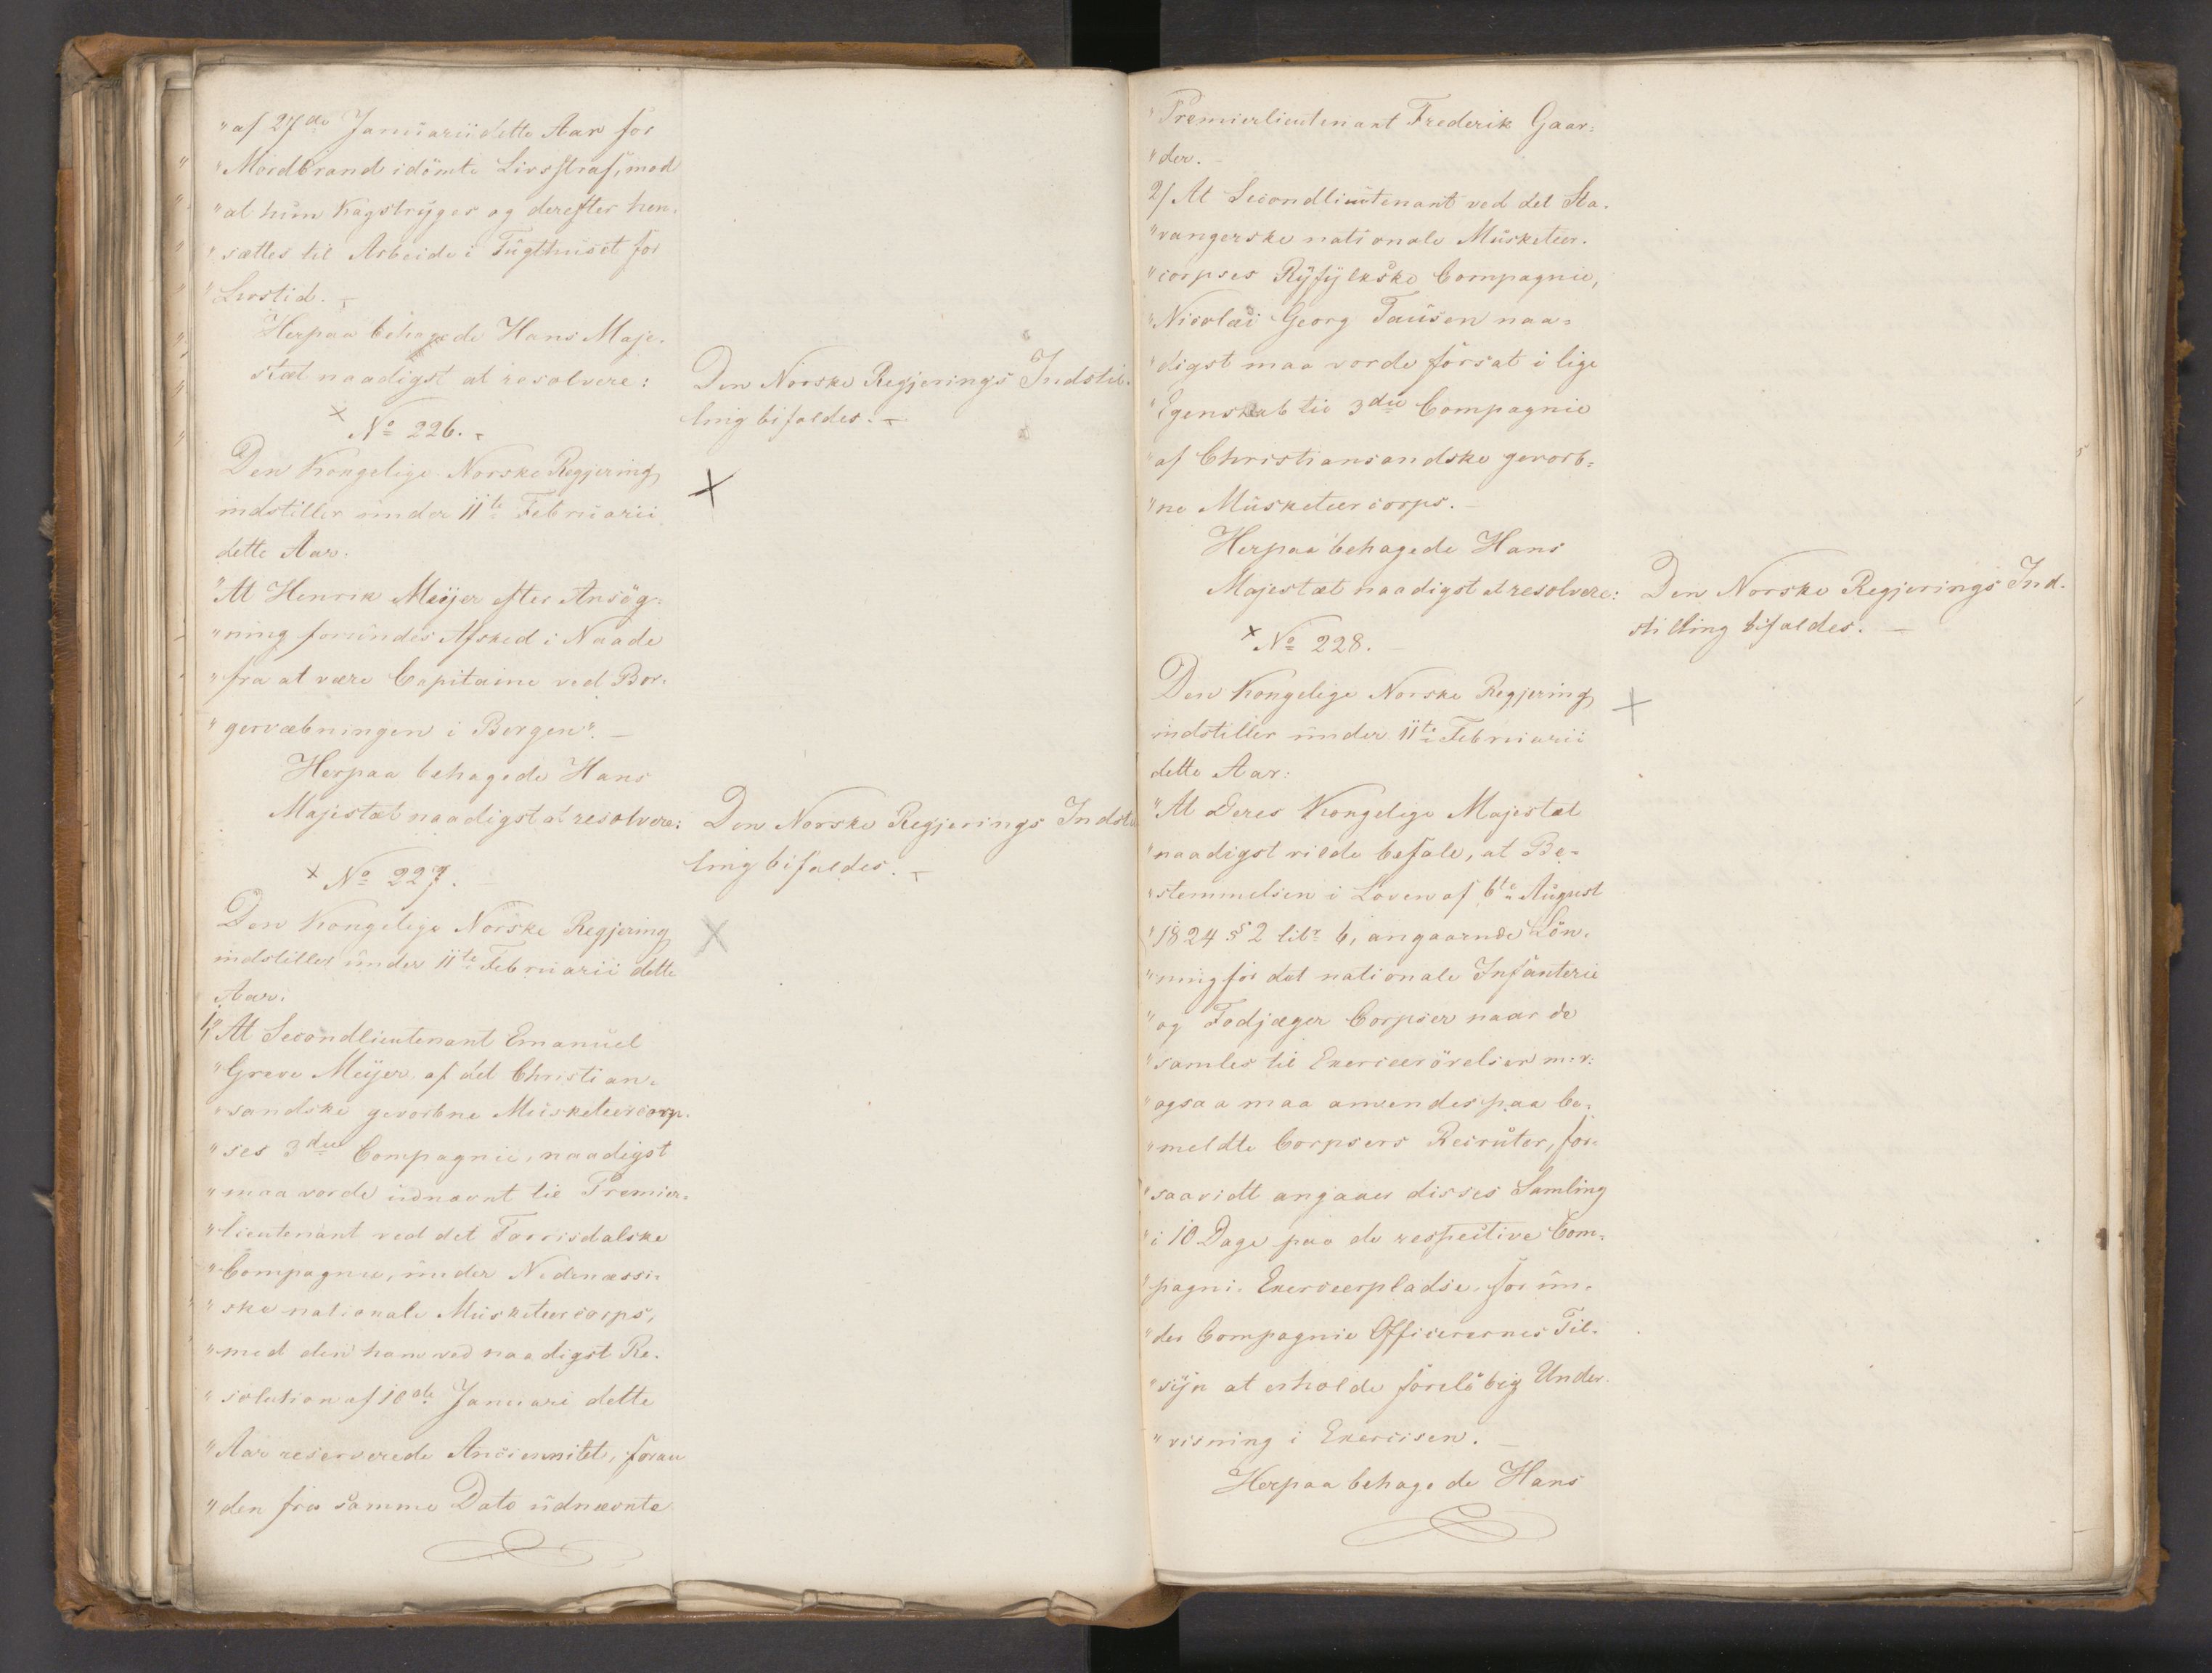 "af 27de Januarii dette Aar for
"Mordbrand idömte Livsstraf, mod
"at hun Kagstryges og derefter hen-
"sættes til Arbeide i Tugthuset for
"Livstid. -
Herpaa behagede Hans Maje-
stæt naadigst at resolvere:
Den Norske Regjerings Indstil-
ling bifaldes. -
× No 226. -
Den Kongelige Norske Regjering
indstiller under 11te Februarii
dette Aar:
"At Henrik Meijer efter Ansøg-
"ning forundes Afsked i Naade
"fra at være Capitaine ved Bor-
"gervæbningen i Bergen". -
Herpaa behagede Hans
Majestæt naadigst at resolvere:
Den Norske Regjerings Indstil
ling bifaldes. -
× No 227. -
Den Kongelige Norske Regjering
indstiller under 11te Februarii dette
Aar:
1/ "At Secondlieutenant Emanuel
"Greve Meijer af det Christian-
"sandske gevorbne Musketeercorp-
"ses 3die Compagnie, naadigst
"maa vorde udnævnt til Premier-
"lieutenant ved det Torrisdalske
"Compagnie, under Nedenæssi-
"ske nationale Musketeercorps,
"med den ham ved naadigst Re-
"solution af 10de Januari dette
"Aar reserverede Anciennitet, foran
"den fra samme Dato udnævnte
"Premierlieutenant Frederik Gaar-
"der. -
2/ At Secondlieutenant ved det Sta-
"vangerske nationale Musketeer-
"corpses Ryfylkske Compagnie,
"Nicolai Georg Tausen naa-
"digst maa vorde forsat i lige
"Egenskab til 3die Compagnie
"af Christiansandske gevorb-
"ne Musketeercorps. -
Herpaa behagede Hans
Majestæt naadigst at resolvere:
Den Norske Regjerings Ind-
stilling bifaldes. -
× No 228. -
Den Kongelige Norske Regjering
indstiller under 11te Februarii
dette Aar:
"At Deres Kongelige Majestæt
"naadigst vilde befale, at Be-
"stemmelsen i Loven af 6te August
"1824 § 2 litr b, angaaende Løn-
"ning for det nationale Infanterie
"og Fodjæger Corpser naar de
"samles til Exerceerövelser m: v:
"ogsaa maa anvendes paa be-
"meldte Corpsers Recruter, for-
"saavidt angaaer disses Samling
"i 10 Dage paa de respective Com-
"pagni- Exerceerpladse, for un-
"der Compagnie Officerernes Til-
"syn at erholde foreløbig Under-
"visning i Exercisen. -
Herpaa behagede Hans